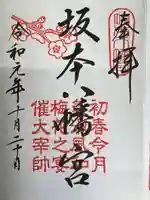 奉拝
坂本八幡宮
初春令月
梅花之宴
催大宰帥
令和元年十月二十日